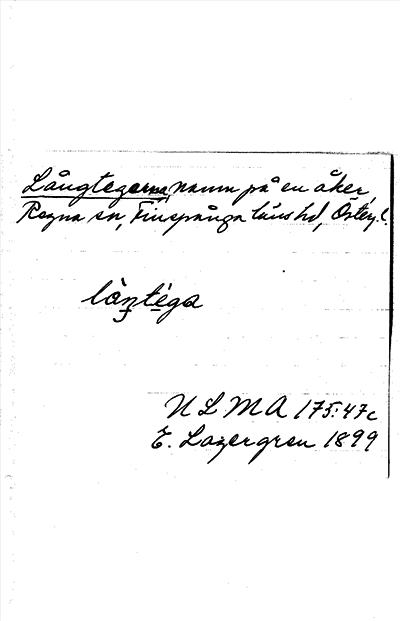 Långtegarna, namn på en åker,
Regna sn, Finspånga läns hd, Östergl.
làŋtéga
ULMA 175:47c
E. Lagergren 1899